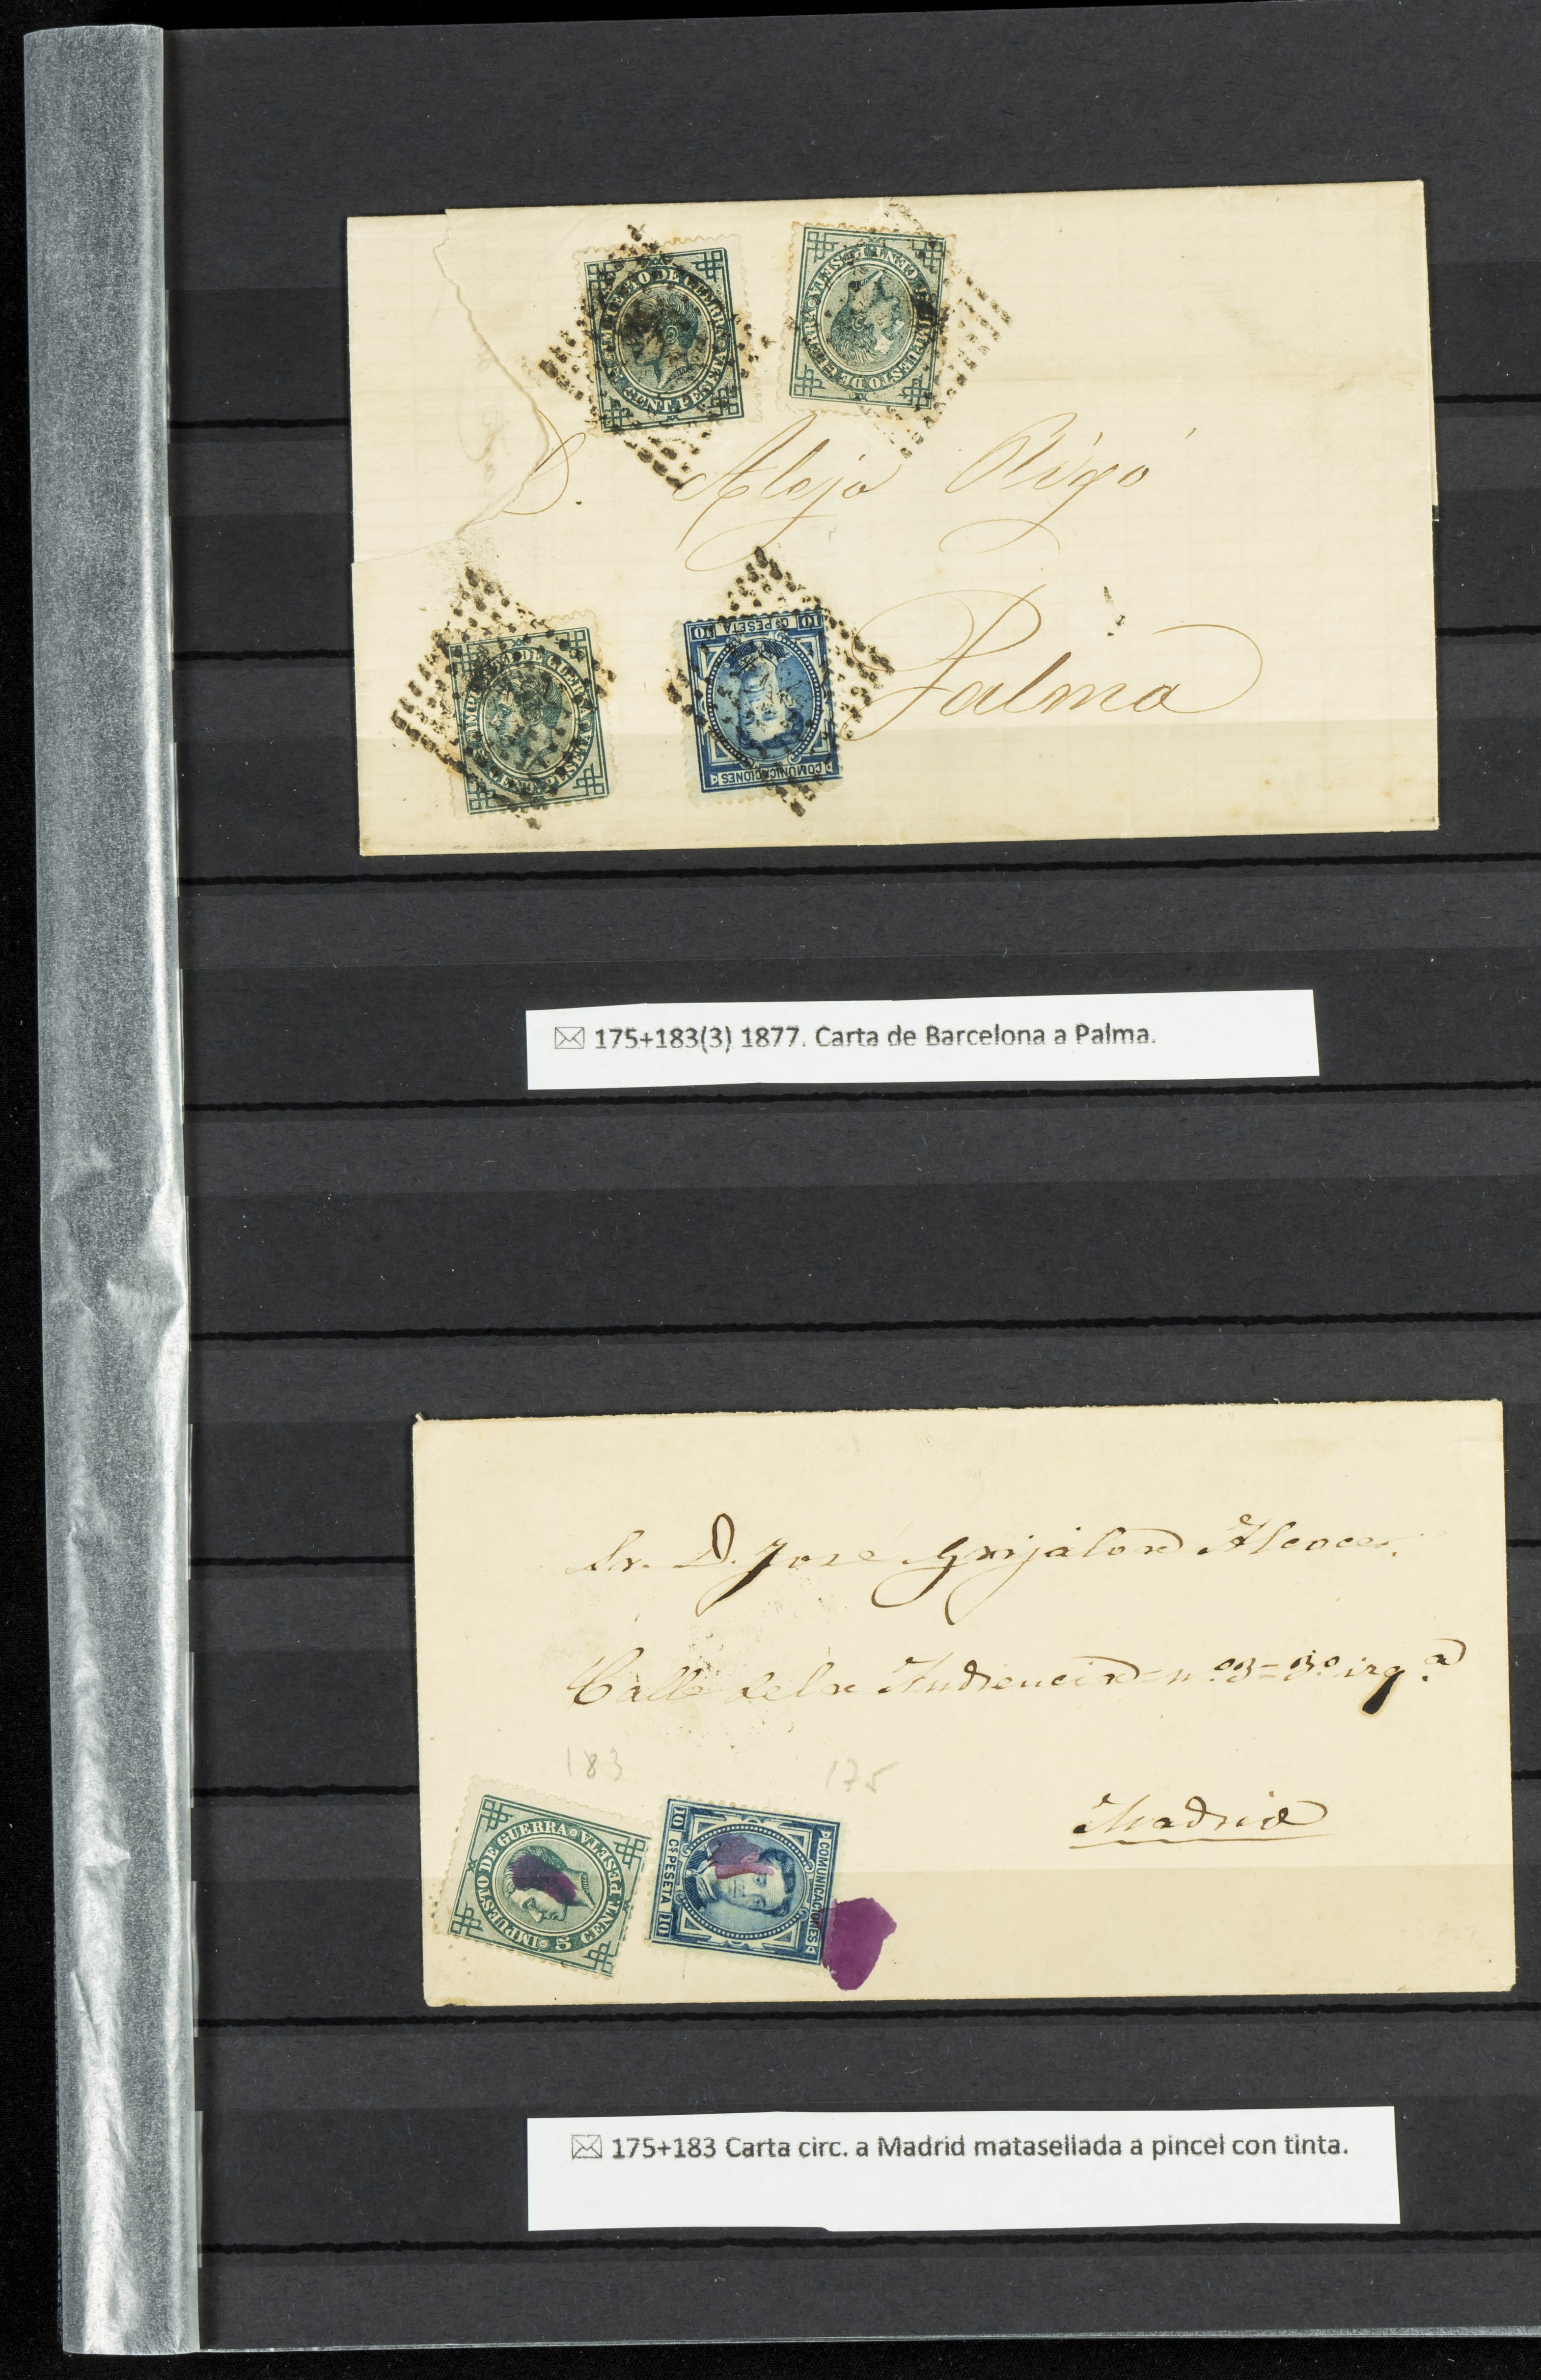 IMPUESTO DE GUERRA
5 CENT. PESETA
IMPUESTO DE GUERRA
5 CENT. PESETA
D. Alejo Rigó
Palma
IMPUESTO DE GUERRA
5 CENT. PESETA
10 Cs PESETA 10
COMUNICACIONES
175+183(3) 1877. Carta de Barcelona a Palma.
Sr. D. José Grijalva Alcocer.
Calle de la Audiencia = nº 3 = 3º izqª
183 175
Madrid
IMPUESTO DE GUERRA
5 CENT. PESETA
10 Cs PESETA 10
COMUNICACIONES
175+183 Carta circ. a Madrid matasellada a pincel con tinta.